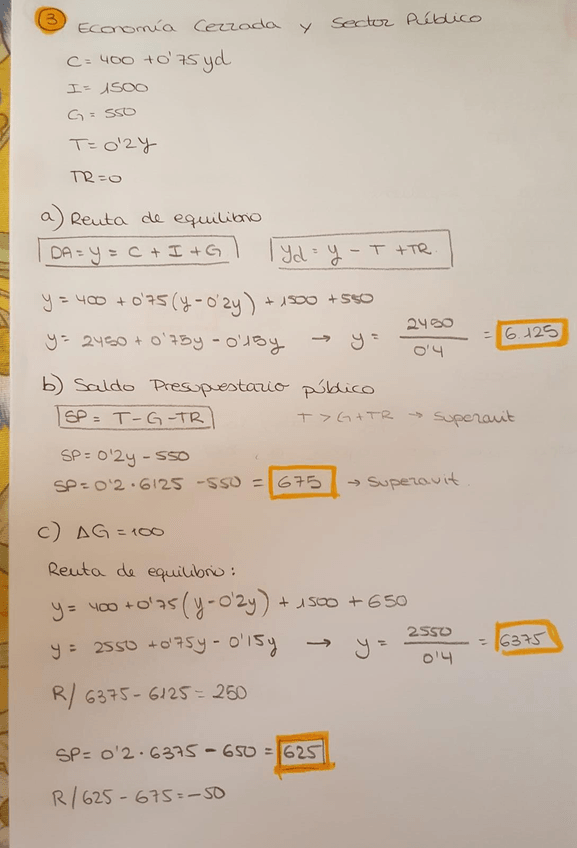 3 Economía Cerrada y Sector Público
C = 400 + 0'75yd
I = 1500
G = 550
T = 0'2y
TR = 0
a) Renta de equilibrio
DA = y = C + I + G    Yd = y - T + TR
y = 400 + 0'75(y - 0'2y) + 1500 + 550
y = 2450 + 0'75y - 0'15y → y = 2450/0'4 = 6.125
b) Saldo Presupuestario público
SP = T - G - TR    T > G + TR → Superavit
SP = 0'2y - 550
SP = 0'2 · 6125 - 550 = 675 → Superavit.
c) ΔG = 100
Renta de equilibrio:
y = 400 + 0'75(y - 0'2y) + 1500 + 650
y = 2550 + 0'75y - 0'15y → y = 2550/0'4 = 6375
R/ 6375 - 6125 = 250
SP = 0'2 · 6375 - 650 = 625
R/ 625 - 675 = -50